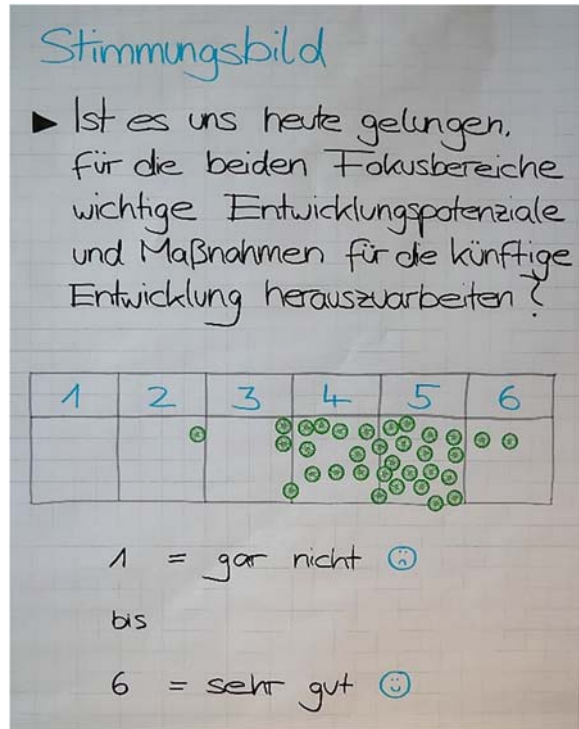 Stimmungsbild
► Ist es uns heute gelungen,
für die beiden Fokusbereiche
wichtige Entwicklungspotenziale
und Maßnahmen für die künftige
Entwicklung herauszuarbeiten?
1 2 3 4 5 6
1 = gar nicht ☹
bis
6 = sehr gut ☺